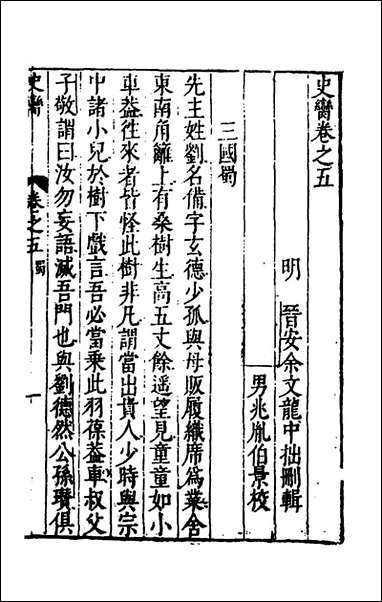 史臠卷之五
明 晉安余文龍中拙刪輯
男兆胤伯景校
三國蜀
先主姓劉名備字玄德少孤與母販履織席為業舍
東南角籬上有桑樹生高五丈餘遥望見童童如小
車蓋徃來者皆怪此樹非凡謂當出貴人少時與宗
中諸小兒於樹下戲言吾必當乘此羽葆蓋車叔父
子敬謂曰汝勿妄語滅吾門也與劉德然公孫瓚俱
史臠
卷之五
蜀
一